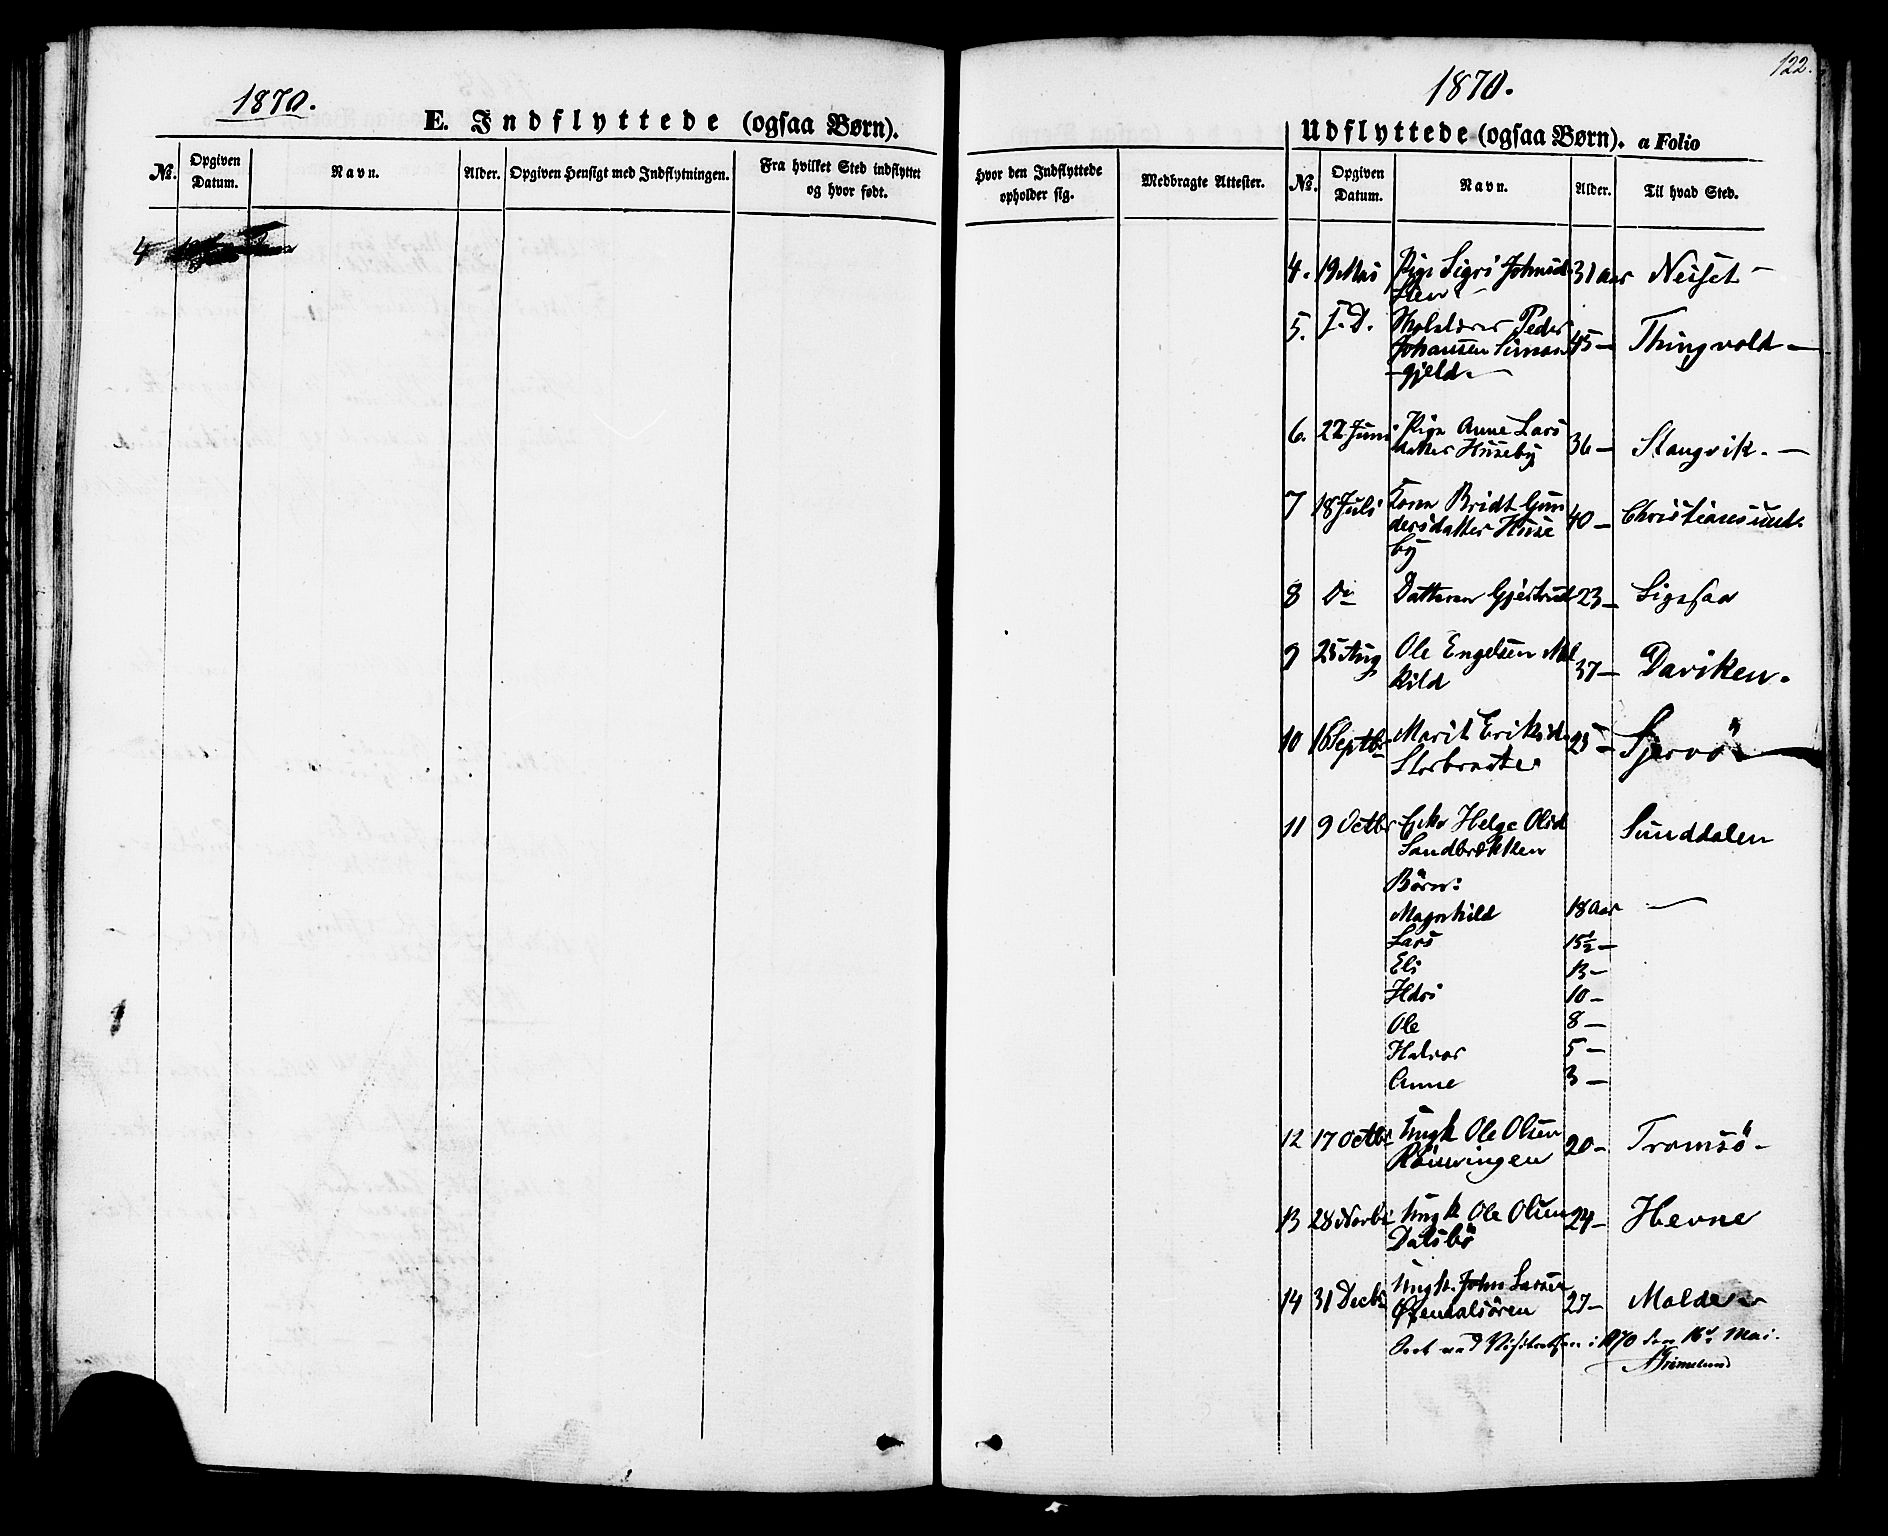 1870.
E. Indflyttede (ogsaa Børn).
No. Opgiven Datum. Navn. Alder. Opgiven Hensigt med Indflytningen. Fra hvilket Sted indflyttet og hvor født.
4
122.
1870.
Udflyttede (ogsaa Børn). a Folio
Hvor den Indflyttede opholder sig. Medbragte Attester. No. Opgiven Datum. Navn. Alder. Til hvad Sted.
4. 19 Mai Pige Sigri Johnsd 31 Aar Nesset -
5. I. D. Skolelærer Peder
Johansen Simon 45 - Thingvold -
gjeld. -
6. 22 Juni Pige Anne Lars
datter Huseby 36 - Stangvik. -
7 18 Juli Kone Bridt Gun
dersdatter Huse 40 - Christiansund.
by
8 Do Datteren Gjertrud 23 - Ligesaa
9 25 Aug Ole Engelsen Mel
kild 37 - Daviken.
10 16 Septbr Marit Eriksd 25 -
11 9 Octbr Enke Helge Olsd Sunddalen
Sandbrekken
Børn:
Magnhild 18 Aar -
Lars 15½ -
Eli 13 -
Ildri 10 -
Ole 8 -
Halvor 5 -
Anne 3 -
12 17 Octbr Ungk Ole Olsen 20 - Tromsö -
Rönningen
13 28 Novbr Ungk Ole Olsen 24 - Hevne
Dalsbö
14 31 Decbr Ungk. John Larsen
Øxendalsören 27 - Molde
Seet ved Visitatsen i 1870 den 16de Mai.
AGrimelund